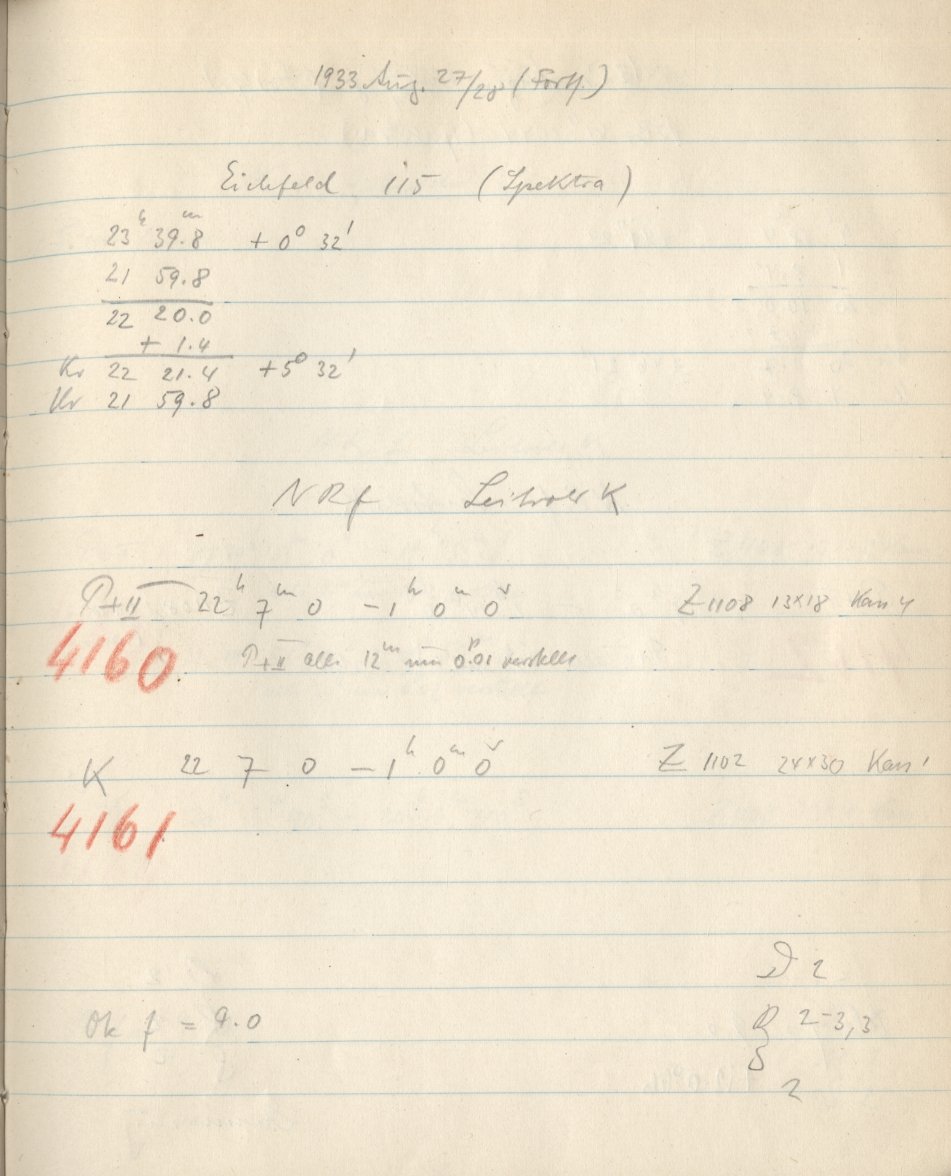 1933 Aug. 27/28 (Forts.)
Eichfeld 115 (Spektra)
23ʰ 39.8ᵐ +0° 32'
21 59.8
22 20.0
+ 1.4
Kr 22 21.4 +5° 32'
Ur 21 59.8
NRf K
P+II 22ʰ 7ᵐ 0 -1ʰ 0ᵐ 0ˢ Z 1108 13x18 Kass 4
4160 P+II alle 12ᵐ um 0.01 verstellt
K 22 7 0 -1ʰ 0ᵐ 0ˢ Z 1102 24x30 Kass 1
4161
D 2
Ok f = 9.0 R 2-3,3
S
2